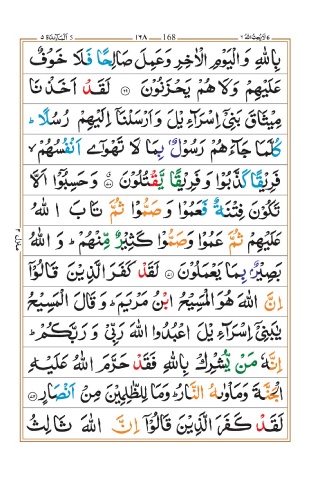 لا يحب الله ٦ ١٦٨ 168 المآئدة ٥
بِاللّٰهِ وَالْيَوْمِ الْاٰخِرِ وَعَمِلَ صَالِحًا فَلَا خَوْفٌ
عَلَيْهِمْ وَلَا هُمْ يَحْزَنُوْنَ ۝٦٩ لَقَدْ اَخَذْنَا
مِيْثَاقَ بَنِيْٓ اِسْرَآءِيْلَ وَاَرْسَلْنَآ اِلَيْهِمْ رُسُلًا ؕ
كُلَّمَا جَآءَهُمْ رَسُوْلٌۢ بِمَا لَا تَهْوٰٓى اَنْفُسُهُمْ ۙ
فَرِيْقًا كَذَّبُوْا وَفَرِيْقًا يَّقْتُلُوْنَ ۝٧٠ وَحَسِبُوْٓا اَلَّا
تَكُوْنَ فِتْنَةٌ فَعَمُوْا وَصَمُّوْا ثُمَّ تَابَ اللّٰهُ
عَلَيْهِمْ ثُمَّ عَمُوْا وَصَمُّوْا كَثِيْرٌ مِّنْهُمْ ؕ وَاللّٰهُ
بَصِيْرٌۢ بِمَا يَعْمَلُوْنَ ۝٧١ لَقَدْ كَفَرَ الَّذِيْنَ قَالُوْٓا
اِنَّ اللّٰهَ هُوَ الْمَسِيْحُ ابْنُ مَرْيَمَ ؕ وَقَالَ الْمَسِيْحُ
يٰبَنِيْٓ اِسْرَآءِيْلَ اعْبُدُوا اللّٰهَ رَبِّيْ وَرَبَّكُمْ ؕ
اِنَّهٗ مَنْ يُّشْرِكْ بِاللّٰهِ فَقَدْ حَرَّمَ اللّٰهُ عَلَيْهِ
الْجَنَّةَ وَمَاْوٰىهُ النَّارُ ؕ وَمَا لِلظّٰلِمِيْنَ مِنْ اَنْصَارٍ ۝٧٢
لَقَدْ كَفَرَ الَّذِيْنَ قَالُوْٓا اِنَّ اللّٰهَ ثَالِثُ
منزل ٢